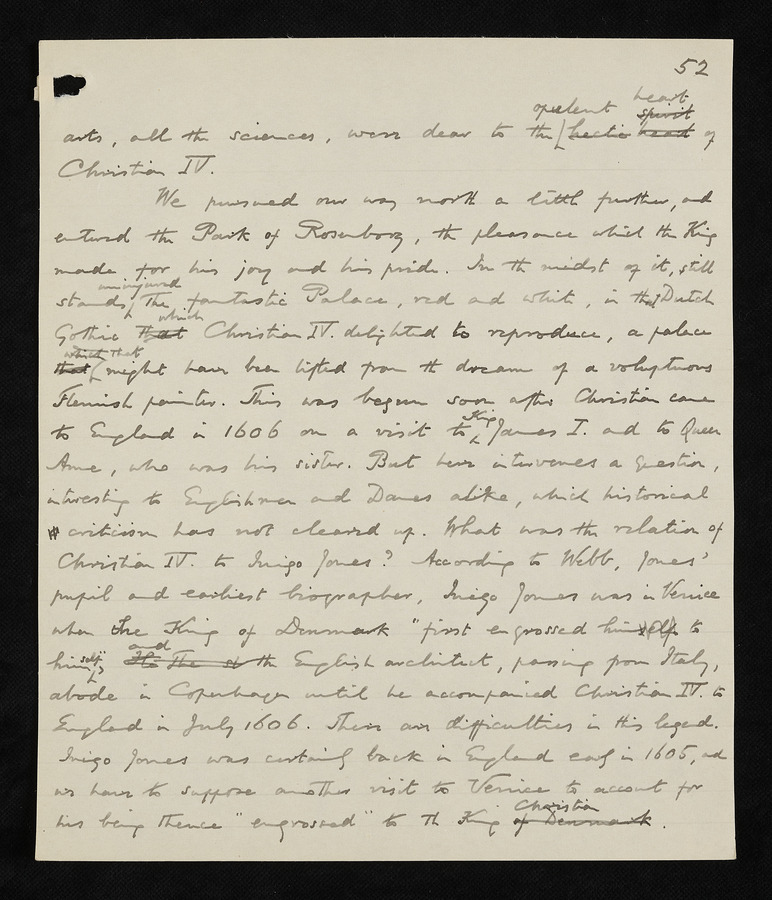 52
opulent heart
spirit
arts, all the sciences, were dear to the hectic heart of
Christian IV.
We pursued our way north a little further, and
entered the Park of Rosenborg, the pleasance which the King
made for his joy and his pride. In the midst of it, still
uninjured
stands, the fantastic Palace, red and white, in that Dutch
which
Gothic that Christian IV. delighted to reproduce, a palace
which that
that might have been lifted from the dream of a voluptuous
Flemish painter. This was begun soon after Christian came
King
to England in 1606 on a visit to James I. and to Queen
Anne, who was his sister. But here intervenes a question,
interesting to Englishmen and Danes alike, which historical
criticism has not cleared up. What was the relation of
Christian IV. to Inigo Jones? According to Webb, Jones'
pupil and earliest biographer, Inigo Jones was in Venice
when the King of Denmark "first engrossed himself to
self" and
him, The st the English architect, passing from Italy,
abode in Copenhagen until he accompanied Christian IV. to
England in July 1606. There are difficulties in this legend.
Inigo Jones was certainly back in England early in 1605, and
we have to suppose another visit to Venice to account for
Christian
his being thence "engrossed" to the King of Denmark.